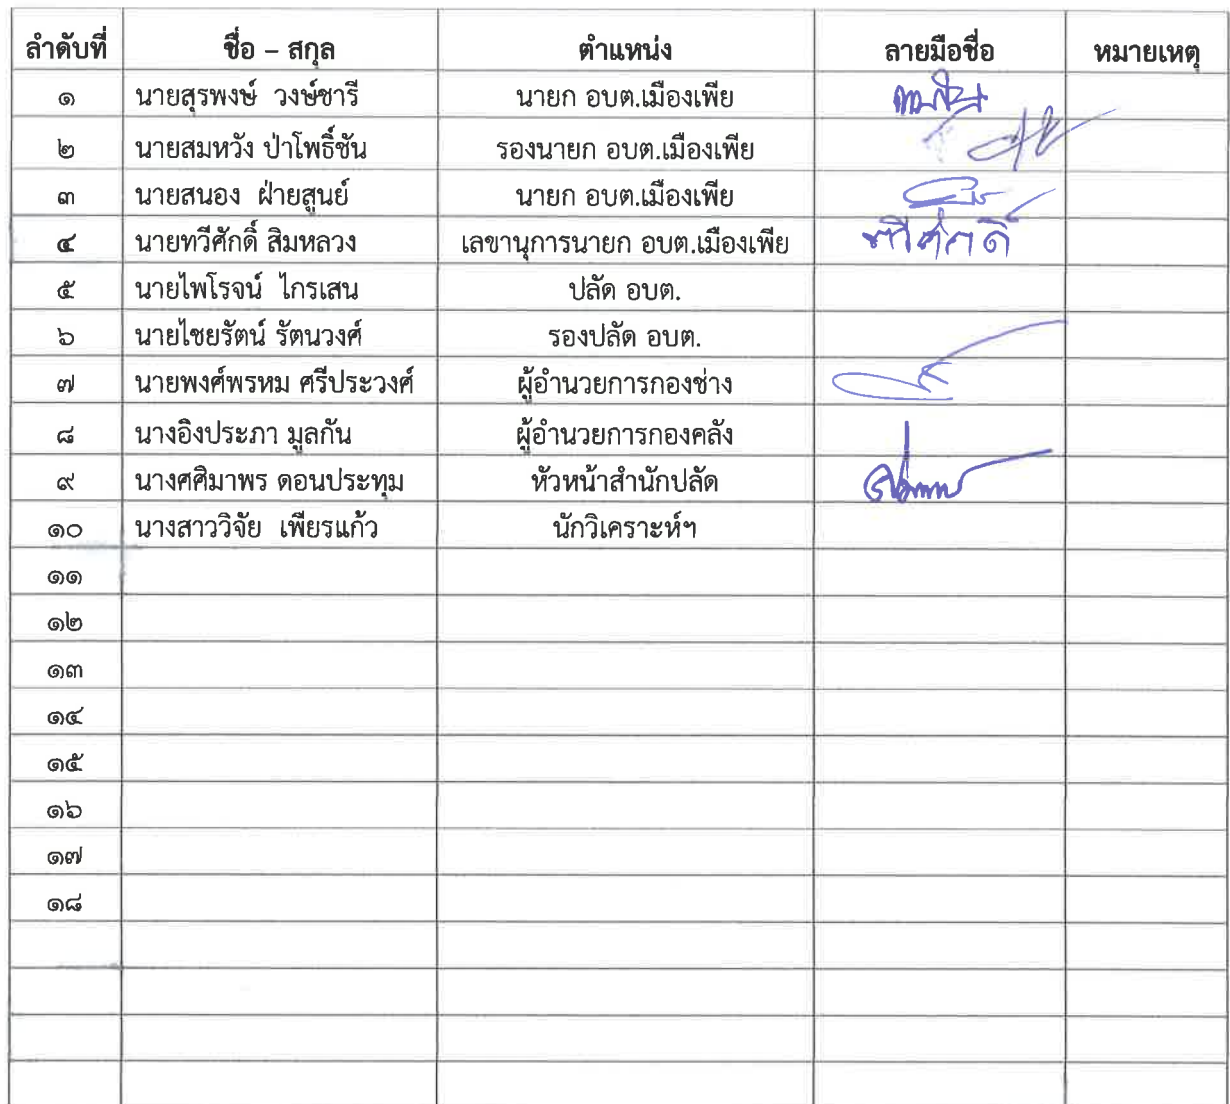 ลำดับที่ ชื่อ – สกุล ตำแหน่ง ลายมือชื่อ หมายเหตุ
๑ นายสุรพงษ์ วงษ์ชารี นายก อบต.เมืองเพีย
๒ นายสมหวัง ป่าโพธิ์ชัน รองนายก อบต.เมืองเพีย
๓ นายสนอง ฝ่ายสูนย์ นายก อบต.เมืองเพีย
๔ นายทวีศักดิ์ สิมหลวง เลขานุการนายก อบต.เมืองเพีย ทวีศักดิ์
๕ นายไพโรจน์ ไกรเสน ปลัด อบต.
๖ นายไชยรัตน์ รัตนวงศ์ รองปลัด อบต.
๗ นายพงศ์พรหม ศรีประวงศ์ ผู้อำนวยการกองช่าง
๘ นางอิงประภา มูลกัน ผู้อำนวยการกองคลัง
๙ นางศศิมาพร ดอนประทุม หัวหน้าสำนักปลัด
๑๐ นางสาววิจัย เพียรแก้ว นักวิเคราะห์ฯ
๑๑
๑๒
๑๓
๑๔
๑๕
๑๖
๑๗
๑๘